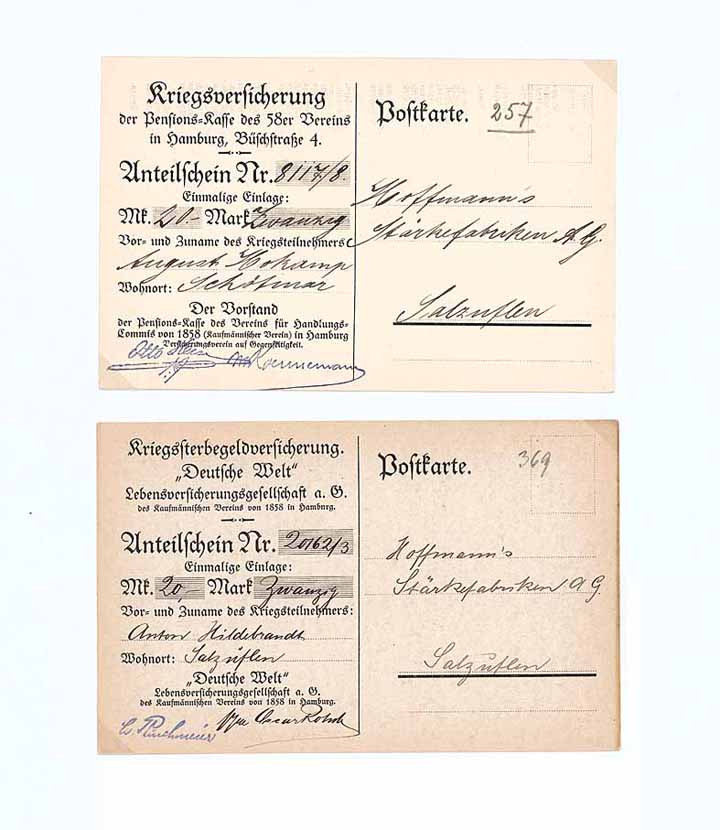 Kriegsversicherung
der Pensions-Kasse des 58er Vereins
in Hamburg, Büschstraße 4.
Anteilschein Nr. 8117/8.
Einmalige Einlage:
Mk. 20.- Mark Zwanzig
Vor- und Zuname des Kriegsteilnehmers
August Hokamp
Wohnort: Schötmar
Der Vorstand
der Pensions-Kasse des Vereins für Handlungs-
Commis von 1858 (Kaufmännischer Verein) in Hamburg
Versicherungsverein auf Gegenseitigkeit.
Postkarte. 257
Hoffmann's
Stärkefabriken A.G.
Salzuflen
Kriegssterbegeldversicherung.
„Deutsche Welt"
Lebensversicherungsgesellschaft a. G.
des Kaufmännischen Vereins von 1858 in Hamburg.
Anteilschein Nr. 20162/3
Einmalige Einlage:
Mk. 20,- Mark Zwanzig
Vor- und Zuname des Kriegsteilnehmers:
Anton Hildebrandt
Wohnort: Salzuflen
„Deutsche Welt"
Lebensversicherungsgesellschaft a. G.
des Kaufmännischen Vereins von 1858 in Hamburg.
Postkarte. 369
Hoffmann's
Stärkefabriken A G.
Salzuflen